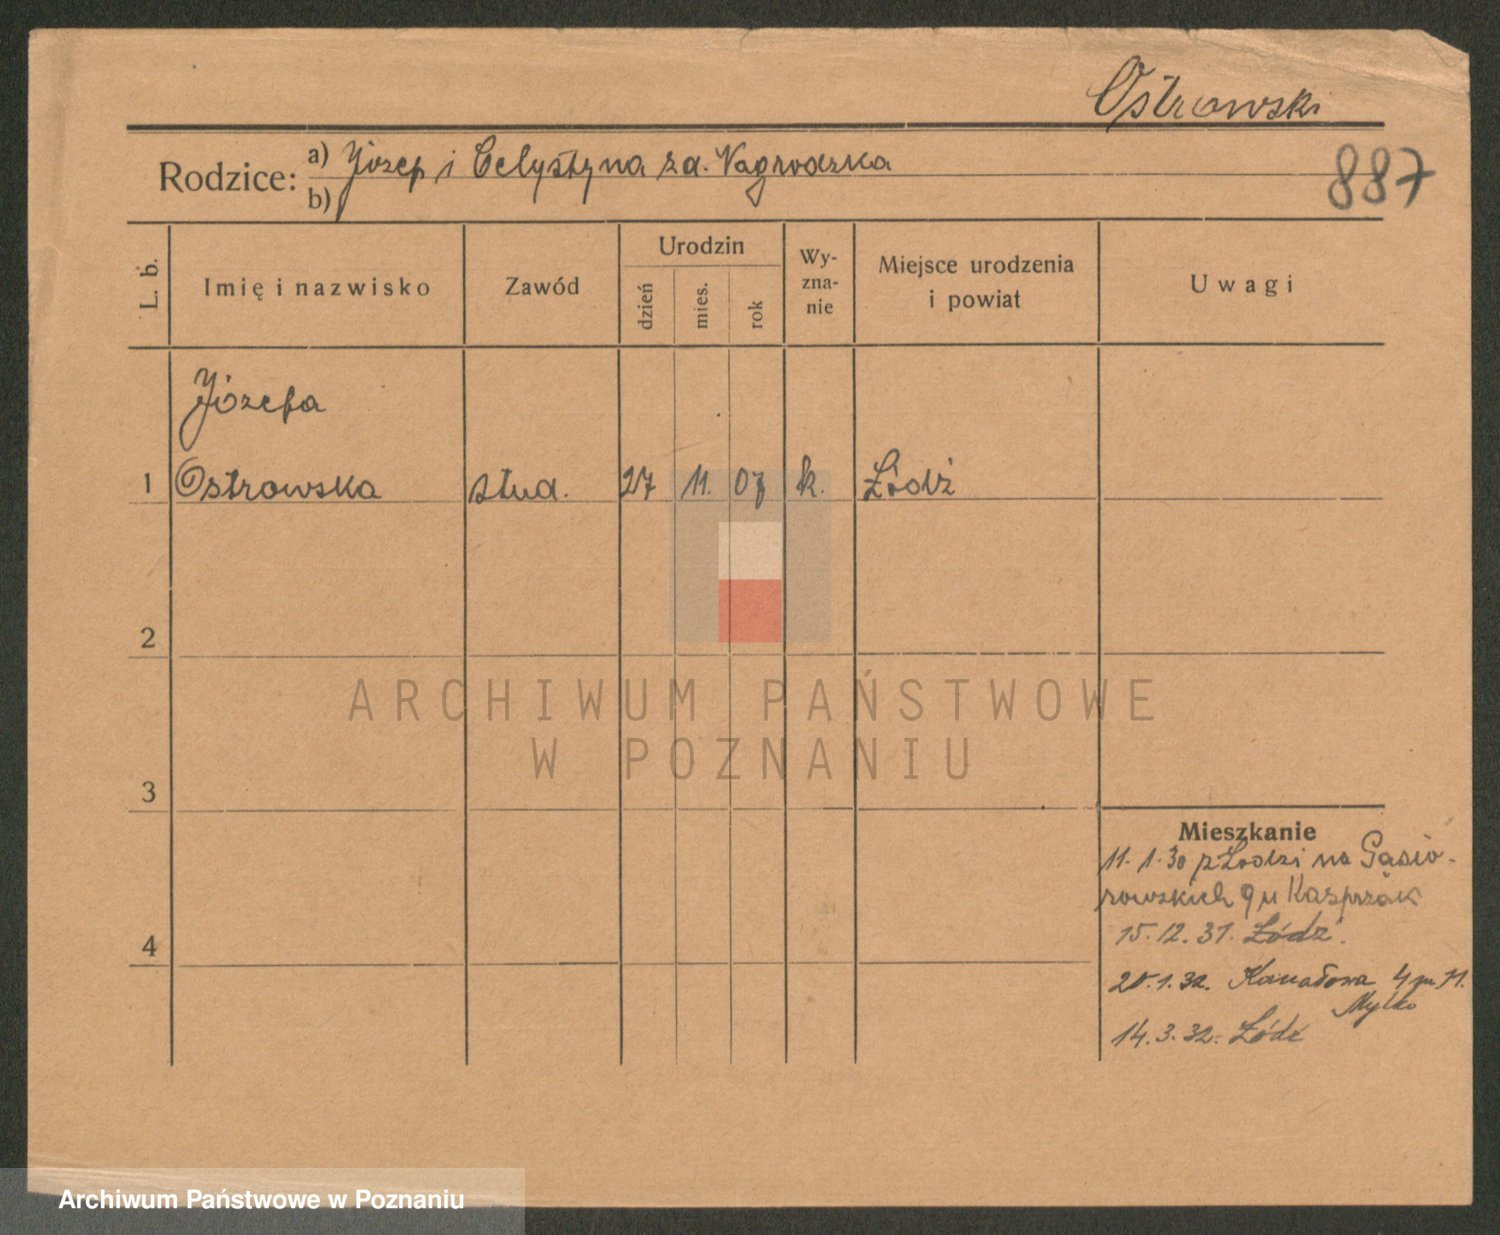 Ostrowski
Rodzice: a) Józef i Celystyna zd. Nagrodzka
b)
887
L. b.
Imię i nazwisko
Zawód
Urodzin
dzień
mies.
rok
Wy-
zna-
nie
Miejsce urodzenia
i powiat
Uwagi
Józefa
1 Ostrowska stud. 27 11. 07 k. Łódź
2
ARCHIWUM PAŃSTWOWE
W POZNANIU
3
Mieszkanie
11.1.30 z Łodzi na Gąsio-
rowskich 9 u Kasprzak
4
15.12.31. Łódź.
20.1.32. Kanałowa 4 m 11.
Mylko
14.3.32. Łódź
Archiwum Państwowe w Poznaniu